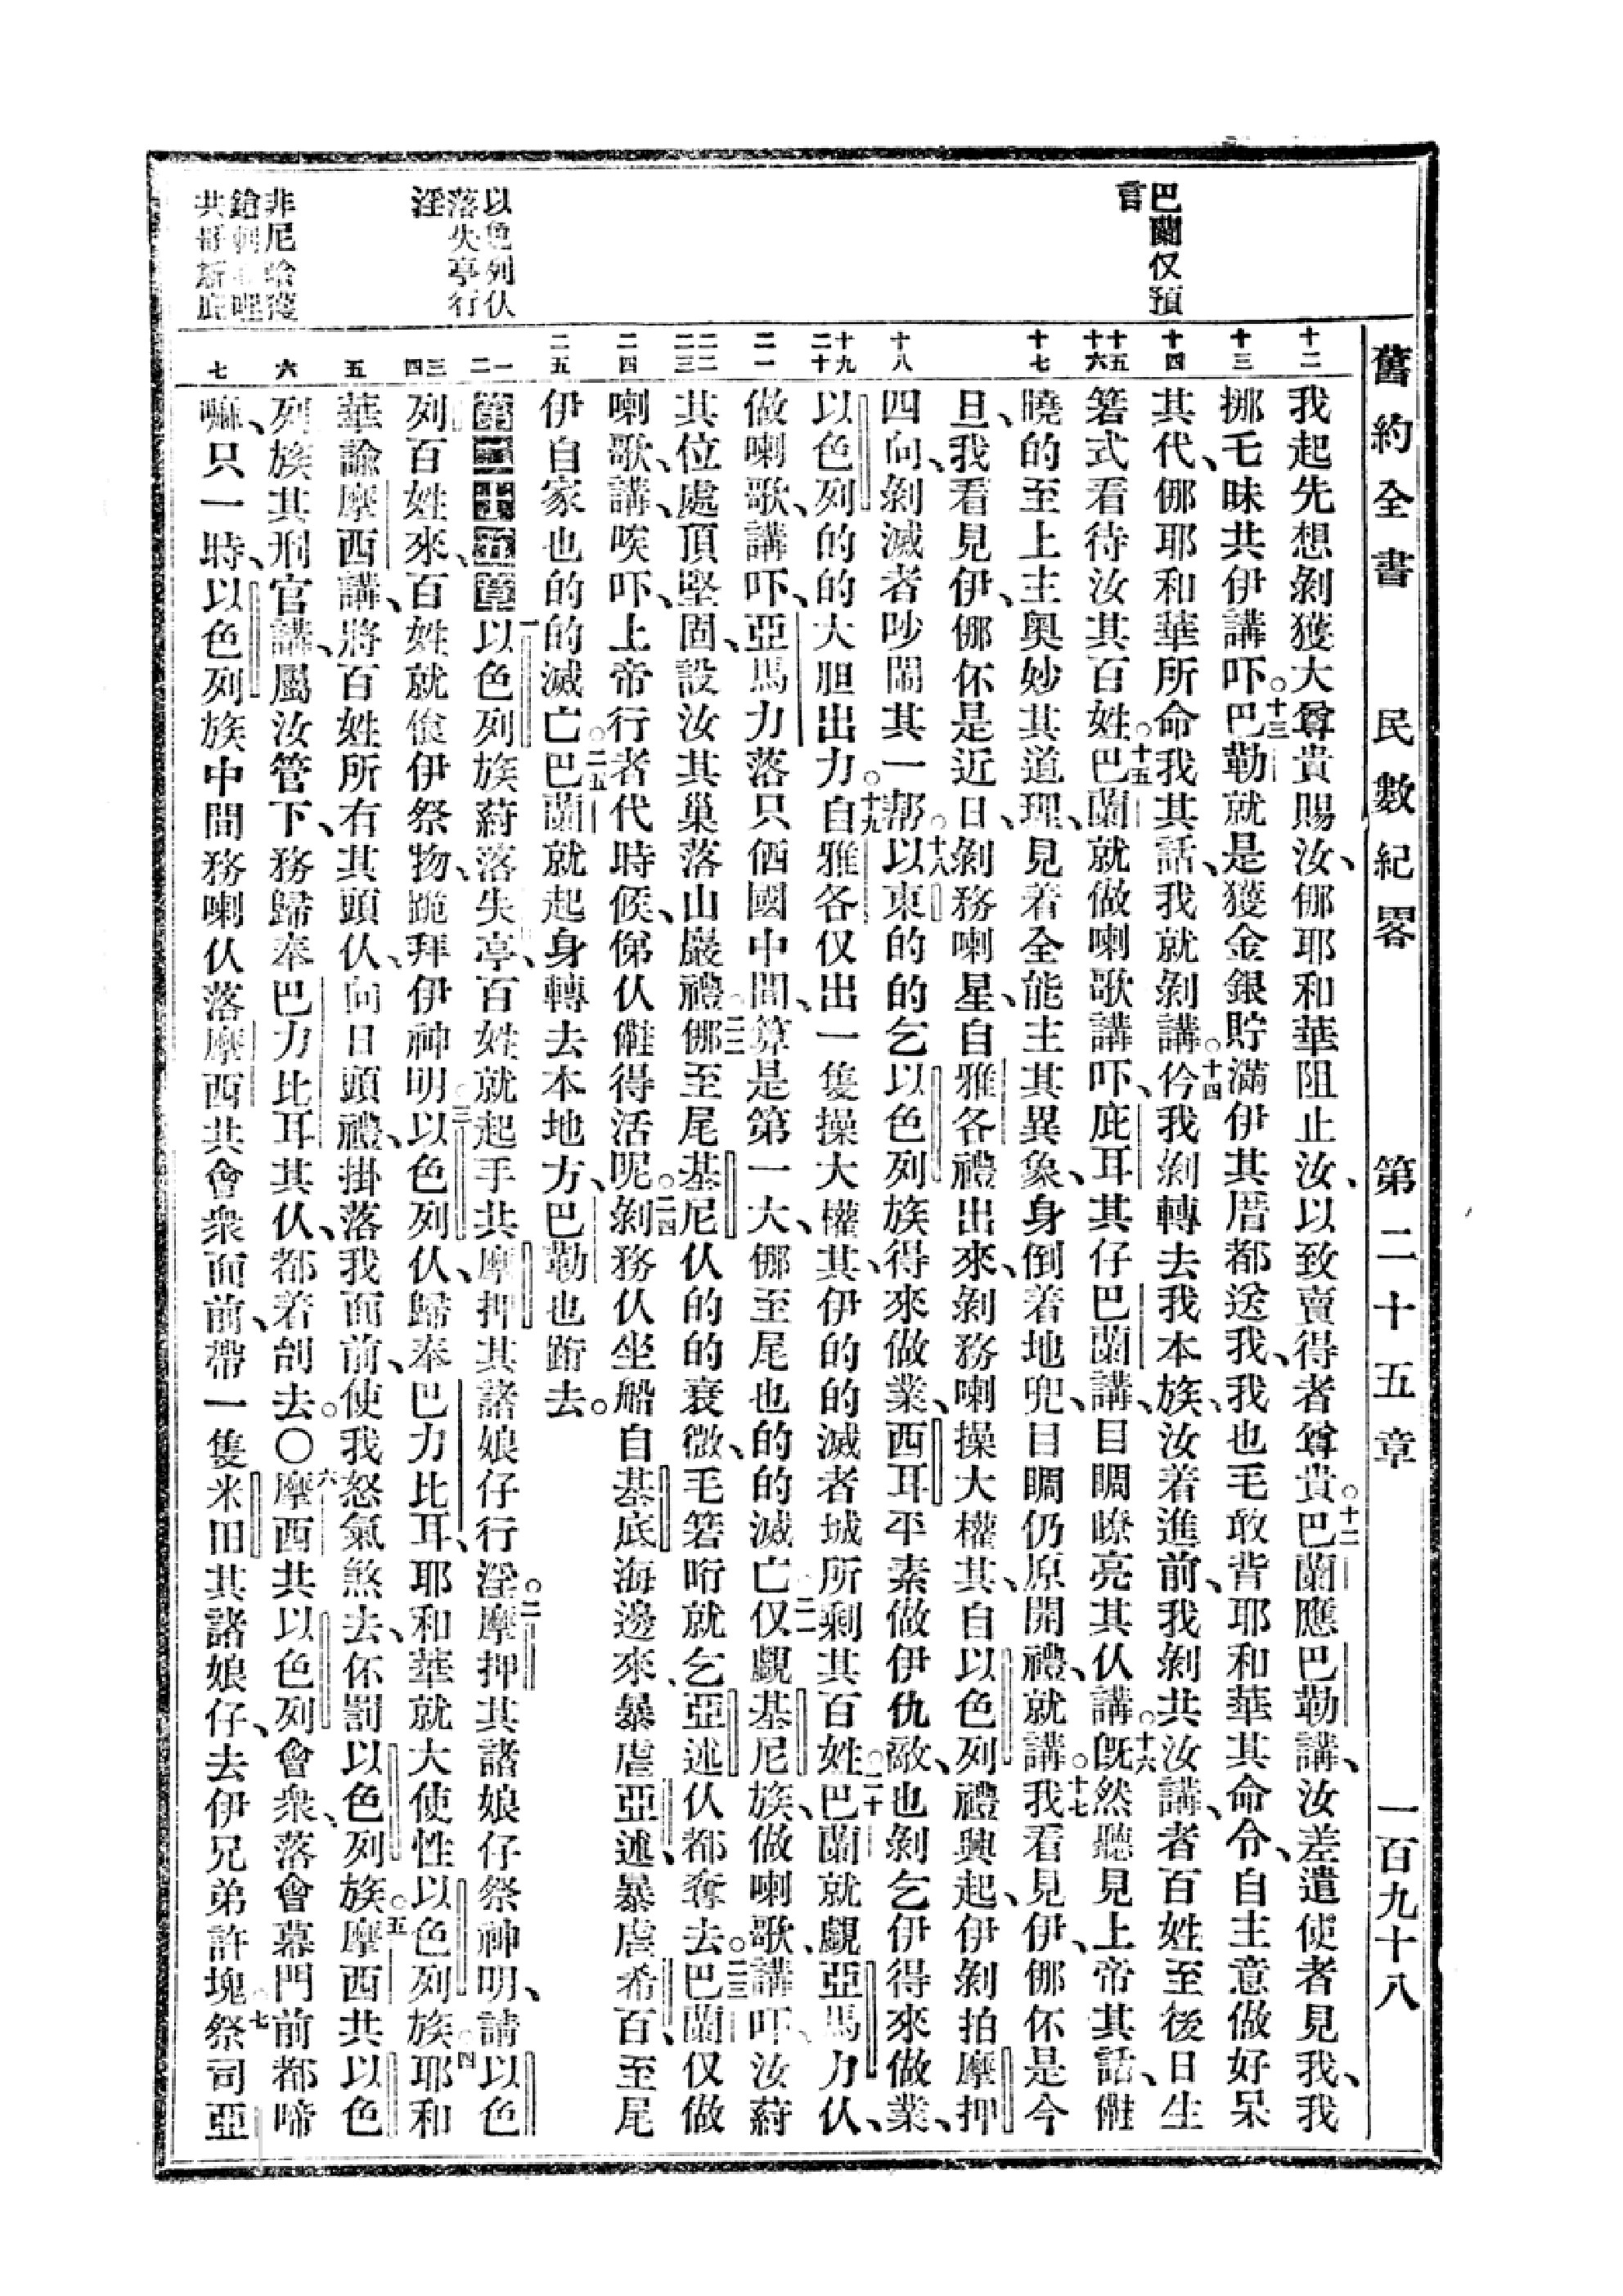 舊約全書 民數紀畧 第二十五章 一百九十八
巴蘭仅預
言
以色列仫
落失亭行
淫
非尼哈

十二
十三
十四
十五
十六
十七
十八
十九
二十
二一
二二
二三
二四
二五
一
二
三
四
五
六
七
我起先想剝獲大尊貴賜汝、㑚耶和華阻止汝、以致賣得者尊貴。十二巴蘭應巴勒講、汝差遣使者見我、我
挪毛昧共伊講吓。十三巴勒就是獲金銀貯滿伊其厝都送我、我也毛敢背耶和華其命令、自主意做好呆
其代、㑚耶和華所命我其話、我就剝講。十四仱我剝轉去我本族、汝着進前、我剝共汝講、者百姓至後日生
箬式看待汝其百姓。十五巴蘭就做喇歌講吓、庇耳其仔巴蘭講、目瞷瞭亮其仫講。十六旣然聽見上帝其話、㑸
曉的至上主奧妙其道理、見着全能主其異象、身倒着地兜、目瞷仍原開禮、就講。十七我看見伊、㑚伓是今
旦、我看見伊、㑚伓是近日、剝務喇星自雅各禮出來、剝務喇操大權其、自以色列禮興起、伊剝拍摩押
四向、剝滅者吵鬧其一幫。十八以東的的乞以色列族得來做業、西耳平素做伊仇敵、也剝乞伊得來做業、
以色列的的大胆出力。十九自雅各仅出一隻操大權其、其伊的的滅者城所剩其百姓。二十巴蘭就覷亞馬力仫、
做喇歌、講吓、亞馬力落只佰國中間、算是第一大、㑚至尾也的的滅亡。二一仅覷基尼族、做喇歌、講吓、汝蒔
其位處頂堅固、設汝其巢落山巖禮。二二㑚至尾基尼仫的的衰微、毛箬哘就乞亞述仫都奪去。二三巴蘭仅做
喇歌、講、唉吓、上帝行者代時候、俤仫㑸得活呢。二四剝務仫坐船自基底海邊來、暴虐亞述、暴虐希百、至尾
伊自家也的的滅亡。二五巴蘭就起身轉去本地方、巴勒也跡去。
第二十五章 一以色列族蒔落失亭、百姓就起手共摩押其諸娘仔行淫。二摩押其諸娘仔祭神明、請以色
列百姓來、百姓就儉伊祭物、跪拜伊神明。三以色列仫、歸奉巴力比耳、耶和華就大使性以色列族。四耶和
華諭摩西講、將百姓所有其頭仫、向日頭禮、掛落我面前、使我怒氣煞去、伓罰以色列族。五摩西共以色
列族其刑官講、屬汝管下、務歸奉巴力比耳其仫、都着刣去。〇六摩西共以色列會衆、落會幕門前都啼
嘛、只一時、以色列族中間務喇仫落摩西共會衆面前、帶一隻米田其諸娘仔、去伊兄弟許塊。七祭司亞